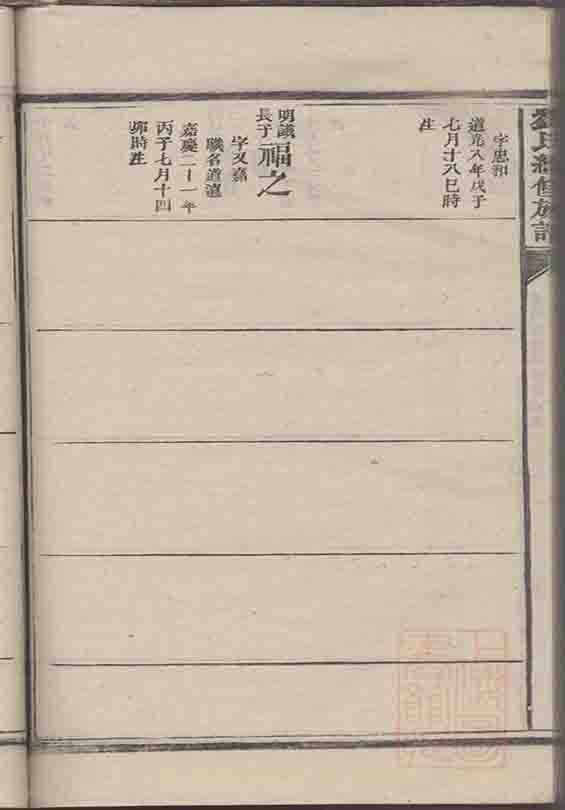 氏續修族譜
字忠和
道光八年戊子
七月十八巳時
生
明議
長子
福之
字又嘉
職名道
嘉慶二十一年
丙子七月十四
卯時生